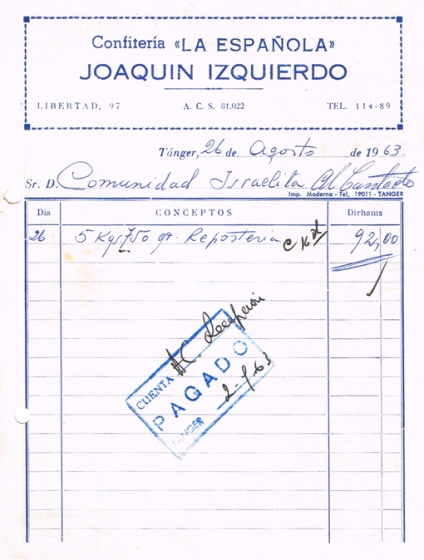 Confitería «LA ESPAÑOLA»
JOAQUIN IZQUIERDO
LIBERTAD, 97 A. C. S. 81.022 TEL. 114-89
Tánger, 26 de Agosto de 1963.
Sr. D. Comunidad Israelita Al Contado
Imp. Moderna - Tel, 19011 - TANGER
Día CONCEPTOS Dirhams
26 5 Kgs 750 gr. Reposteria 92,00
CUENTA Recepcion
PAGADO
TANGER